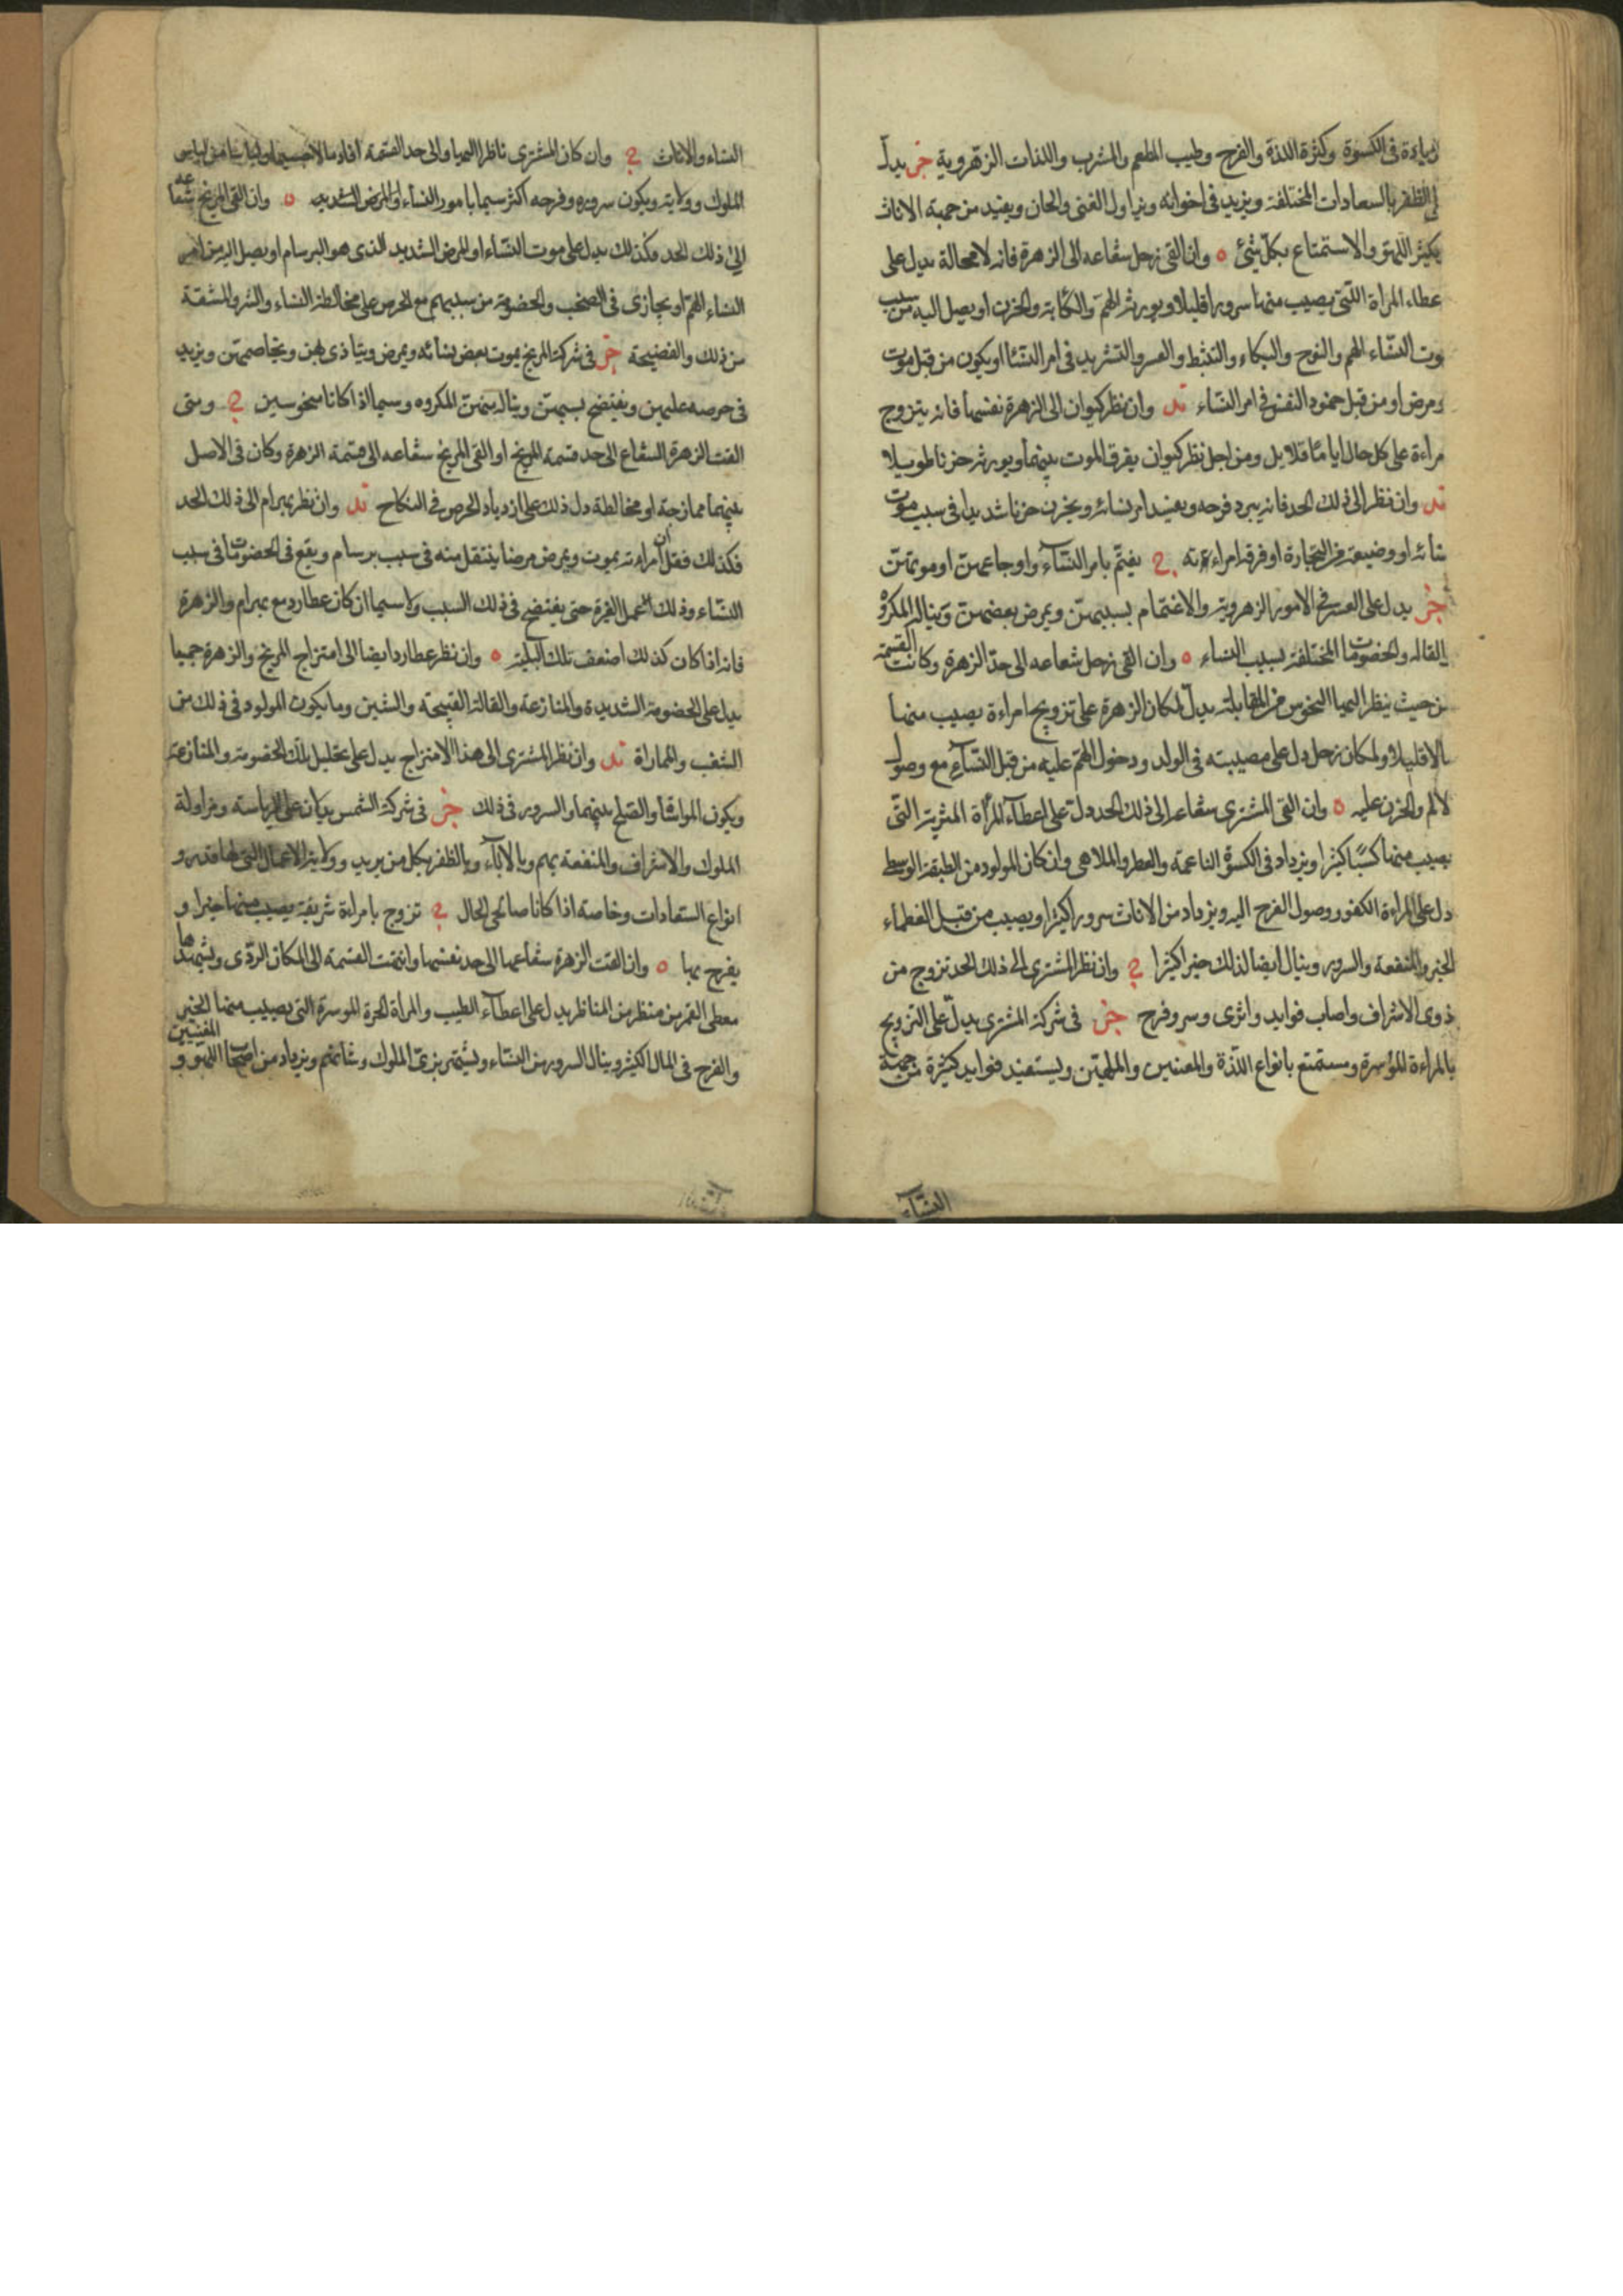 زيادة في الكسوة وكثرة اللذة والفرح وطيب المطعم والمشرب واللذات الزهروية خر يدل
الظفر بالسعادات المختلفة ويزيد في اخوانه ويزاول الغنى والحان ويفيد من جهة الاناث
يكثر اللهو والاستمتاع بكل شئ ٥ وان القى زحل شعاعه الى الزهرة فانه لا محالة يدل على
عطاء المراة التي يصيب منها سرورا قليلا ويورث الهم والكآبة والحزن او يصل اليه من سبب
موت النساء الهم والنوح والبكاء والتثبط والعسر والتشريد في امر النساء او يكون من قبل موت
ومرض او من قبل جمود النفس في امر النساء ند وان نظر كيوان الى الزهرة نفسها فانه يتزوج
مراءة على كل حال اياما قلايل ومن اجل نظر كيوان يفرق الموت بينهما ويورث حزنا طويلا
ند وان نظر الى ذلك الحد فانه يبرد فرحه ويفسد امر نسائه ويحزن حزنا شديدا في سبب موت
نسائه او وضيعة في التجارة او فرقة امراءته ح يغتم بامر النساء واوجاعهن او موتهن
خر يدل على العسر في الامور الزهروية والاغتمام بسببهن ويمرض بعضهن ويناله المكروه
القاله والخصومات المختلفة بسبب النساء ٥ وان القى زحل شعاعه الى حد الزهرة وكانت القسمة
من حيث ينظر اليها النحوس من المقابلة يدل لمكان الزهرة على تزويج امراءة يصيب منها
مالا قليلا ولمكان زحل دل على مصيبته في الولد ودخول الهم عليه من قبل النساء مع وصول
الالم والحزن عليه ٥ وان القى المشترى شعاعه الى ذلك الحد دلت على اعطاء المرأة المثرية التي
يصيب منها كسبا كثيرا ويزداد في الكسوة الناعمة والعطر والملاهى وان كان المولود من الطبقة الوسط
دل على المراءة الكفو ووصول الفرح اليه ويزداد من الاناث سرورا كثيرا ويصيب من قبل العظماء
الخير والمنفعة والسرور وينال ايضا لذلك خيرا كثيرا ح وان نظر المشترى الى ذلك الحد تزوج من
ذوى الاشراف واصاب فوايد واثرى وسر وفرح خر في شركة المشترى يدل على التزويج
بالمراءة الموسرة ومستمتع بانواع اللذة والمغنيين والملهين ويستفيد فوايد كثيرة من جهة
النساء
النساء والاناث ح وان كان المشترى ناظرا اليها والى حد القسمة افاد مالا جسيما ولباسا من لباس
الملوك وولايته ويكون سروره وفرحه اكثر سيما بامور النساء والمرض الشديد ٥ وان القى المريخ شعاعه
الى ذلك الحد فكذلك يدل على موت النساء او المرض الشديد الذى هو البرسام او يصل اليه من
النساء الهم او يجازى في الصخب والخصومة من سببهم مع الحرص على مخالطة النساء والشر والمشقة
من ذلك والفضيحة خر في شركة المريخ يموت بعض نسائه ويمرض ويتاذى بهن ويخاصمهن ويزيد
في حرصه عليهن ويفتضح بسببهن ويناله منهن المكروه وسيما اذا كانا منحوسين ح ومتى
القت الزهرة الشعاع الى حد قسمة المريخ او القى المريخ شعاعه الى قسمة الزهرة وكان في الاصل
بينهما ممازجة او مخالطة دل ذلك على ازدياد الحرص في النكاح ند وان نظر بهرام الى ذلك الحد
فكذلك فقل ان امراءته يموت ويمرض مرضا ينتقل منه في سبب برسام ويقع في الخصومات في سبب
النساء وذلك لعمل الغيرة حتى يفتضح في ذلك السبب ولا سيما ان كان عطارد مع بهرام والزهرة
فانه اذا كان كذلك اضعف تلك البلية ٥ وان نظر عطارد ايضا الى امتزاج المريخ والزهرة جميعا
يدل على الخصومة الشديدة والمنازعة والقالة القبيحة والشين وما يكون المولود في ذلك من
الشغب والمماراة ند وان نظر المشترى الى هذا الامتزاج يدل على تحليل تلك الخصومة والمنازعة
ويكون المواتاة والصلح بينهما والسرور في ذلك خر في شركة الشمس يدلان على الرياسة ومزاولة
الملوك والاشراف والمنفعة بهم وبالاباء وبالظفر بكل من يريد وولاية الاعمال التي لها قدر و
انواع السعادات وخاصة اذا كانا صالحى الحال ح تزوج بامراءة شريفة يصيب منها خيرا و
يفرح بها ٥ وان القت الزهرة شعاعها الى حد نفسها وانتهت القسمة الى المكان الردى ويشهدها
معطى القمر من منظر من المناظر يدل على اعطاء الطيب والمرأة الحرة الموسرة التي يصيب منها الخير
والفرح في المال الكثير وينال السرور من النساء ويشتهر بزى الملوك وشانهم ويزداد من اصحاب اللهو و المغنيين